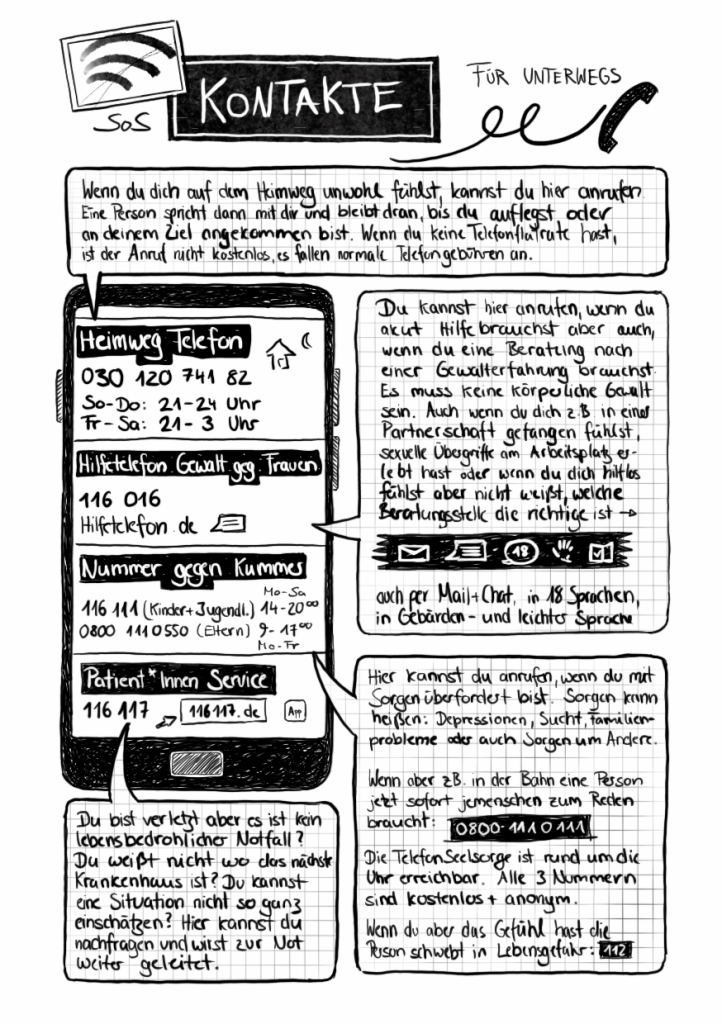 SOS
KONTAKTE
FÜR UNTERWEGS
Wenn du dich auf dem Heimweg unwohl fühlst, kannst du hier anrufen.
Eine Person spricht dann mit dir und bleibt dran, bis du auflegst oder
an deinem Ziel angekommen bist. Wenn du keine Telefonflatrate hast,
ist der Anruf nicht kostenlos, es fallen normale Telefongebühren an.
Heimweg Telefon
030 120 741 82
So-Do: 21-24 Uhr
Fr-Sa: 21-3 Uhr
Hilfetelefon Gewalt geg Frauen
116 016
Hilfetelefon.de
Nummer gegen Kummer
Mo-Sa
116 111 (Kinder+Jugendl.) 14-20⁰⁰
0800 1110550 (Eltern) 9-17⁰⁰
Mo-Fr
Patient*Innen Service
116 117
116117.de
App
Du kannst hier anrufen, wenn du
akut Hilfe brauchst aber auch,
wenn du eine Beratung nach
einer Gewalterfahrung brauchst.
Es muss keine körperliche Gewalt
sein. Auch wenn du dich z.B in einer
Partnerschaft gefangen fühlst,
sexuelle Übergriffe am Arbeitsplatz er-
lebt hast oder wenn du dich hilflos
fühlst aber nicht weißt, welche
Beratungsstelle die richtige ist →
18
auch per Mail+Chat, in 18 Sprachen,
in Gebärden- und leichter Sprache
Hier kannst du anrufen, wenn du mit
Sorgen überfordert bist. Sorgen kann
heißen: Depressionen, Sucht, Familien-
probleme oder auch Sorgen um Andere.
Wenn aber z.B. in der Bahn eine Person
jetzt sofort jemenschen zum Reden
braucht: 0800-1110111
Die TelefonSeelsorge ist rund um die
Uhr erreichbar. Alle 3 Nummern
sind kostenlos + anonym.
Wenn du aber das Gefühl hast die
Person schwebt in Lebensgefahr: 112
Du bist verletzt aber es ist kein
lebensbedrohlicher Notfall?
Du weißt nicht wo das nächste
Krankenhaus ist? Du kannst
eine Situation nicht so ganz
einschätzen? Hier kannst du
nachfragen und wirst zur Not
weiter geleitet.